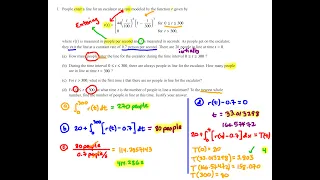 1. People enter a line for an escalator at a rate modeled by the function r given by
Entering
r(t) =
for 0 ≤ t ≤ 300
for t > 300,
where r(t) is measured in people per second and t is measured in seconds. As people get on the escalator,
they exit the line at a constant rate of 0.7 person per second. There are 20 people in line at time t = 0.
initially
(a) How many people enter the line for the escalator during the time interval 0 ≤ t ≤ 300?
(b) During the time interval 0 ≤ t ≤ 300, there are always people in line for the escalator. How many people are
in line at time t = 300?
(c) For t > 300, what is the first time t that there are no people in line for the escalator?
(d) For 0 ≤ t ≤ 300, at what time t is the number of people in line a minimum? To the nearest whole
number, find the number of people in line at this time. Justify your answer.
a ∫ r(t) dt = 270 people
b 20 + ∫ [r(t) - 0.7] dt = 80 people
c 80 people
0.7 people/s
= 114.2857143
414.2862
d r(t) - 0.7 = 0
33.013298
166.57472
20 + ∫ [r(x) - 0.7] dx = T(t)
T(0) = 20
T(33.013298) = 3.803
T(166.574712) = 158.070
T(300) = 80
4